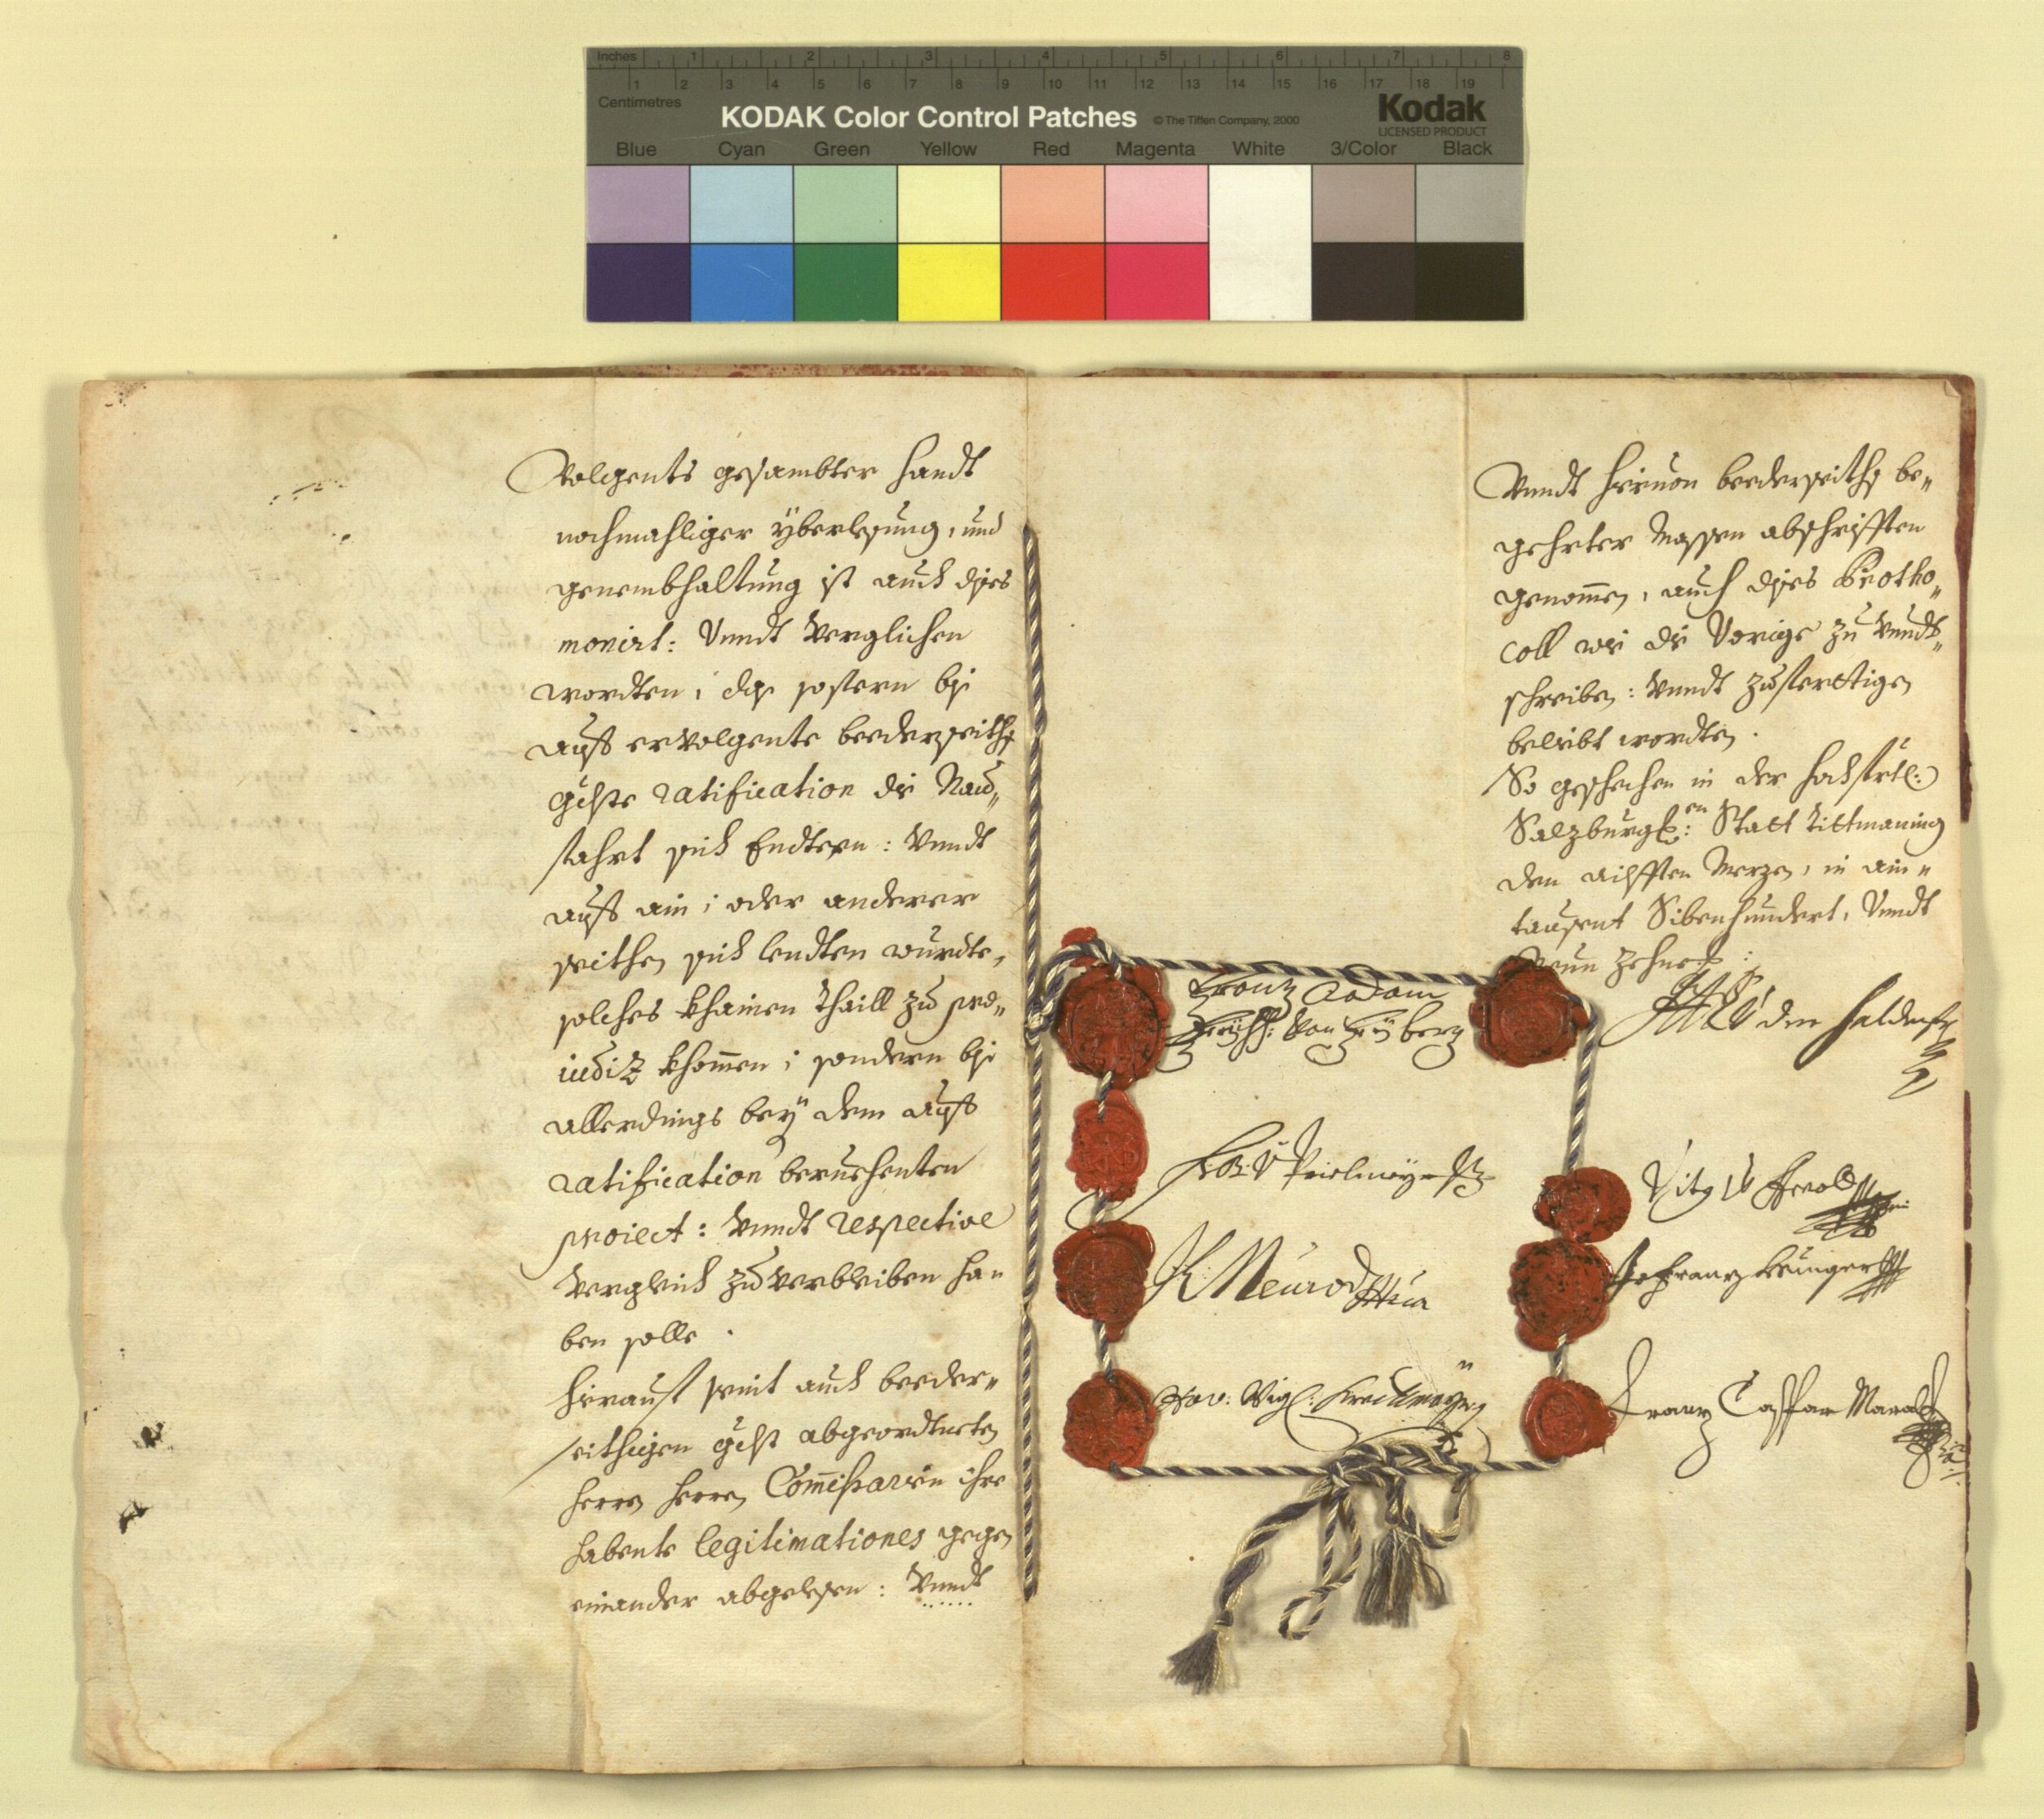 Inches 1 2 3 4 5 6 7 8
1 2 3 4 5 6 7 8 9 10 11 12 13 14 15 16 17 18 19
Centimetres
KODAK Color Control Patches © The Tiffen Company, 2000 Kodak
LICENSED PRODUCT
Blue Cyan Green Yellow Red Magenta White 3/Color Black
Volgents gesambter handt
nochmahliger yberlesung, und
genembhaltung ist auch dises
monirt: Vnndt Verglichen
wordten; dass sofern bis
auf ervolgente beederseiths
ratification die Nau„
fahrt sich Endtern: Vnndt
auf ain; oder anderer
seithen sich lendten wurdte,
solches khainen thaill zu præ„
iudiz khomen; sondern bis
allerdings bey dem auf
ratification beruehenten
proiect: Vnndt respective
Vergleich zu Verbleiben ha„
ben solle.
Hierauf seint auch beeder„
seithigen abgeordtneten
Herrn Herrn Commissarien ihre
habente legitimationes gegen
einander abgelesen: Vnndt
Vnndt hieruon beederseiths be„
gehrter Massen abschrifften
genommen, auch dises Protho„
coll wie die Vorige zu Vndt„
schreiben: Vnndt zu fertigen
beliebt wordten.
So geschehen in der
Salzburgl:en Statt Tittmaning
den ailfften Merzen, in ain„
tausent Sibenhundert, Vnndt
Neun zehnet:
Franz Adam
Freyh: von Freyberg
Franz Caspar